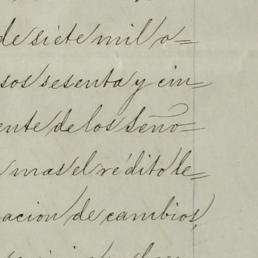 de siete mil o=
sos sesenta y cin=
ente de los Seño=
mas el rédito le=
acion de cambios,